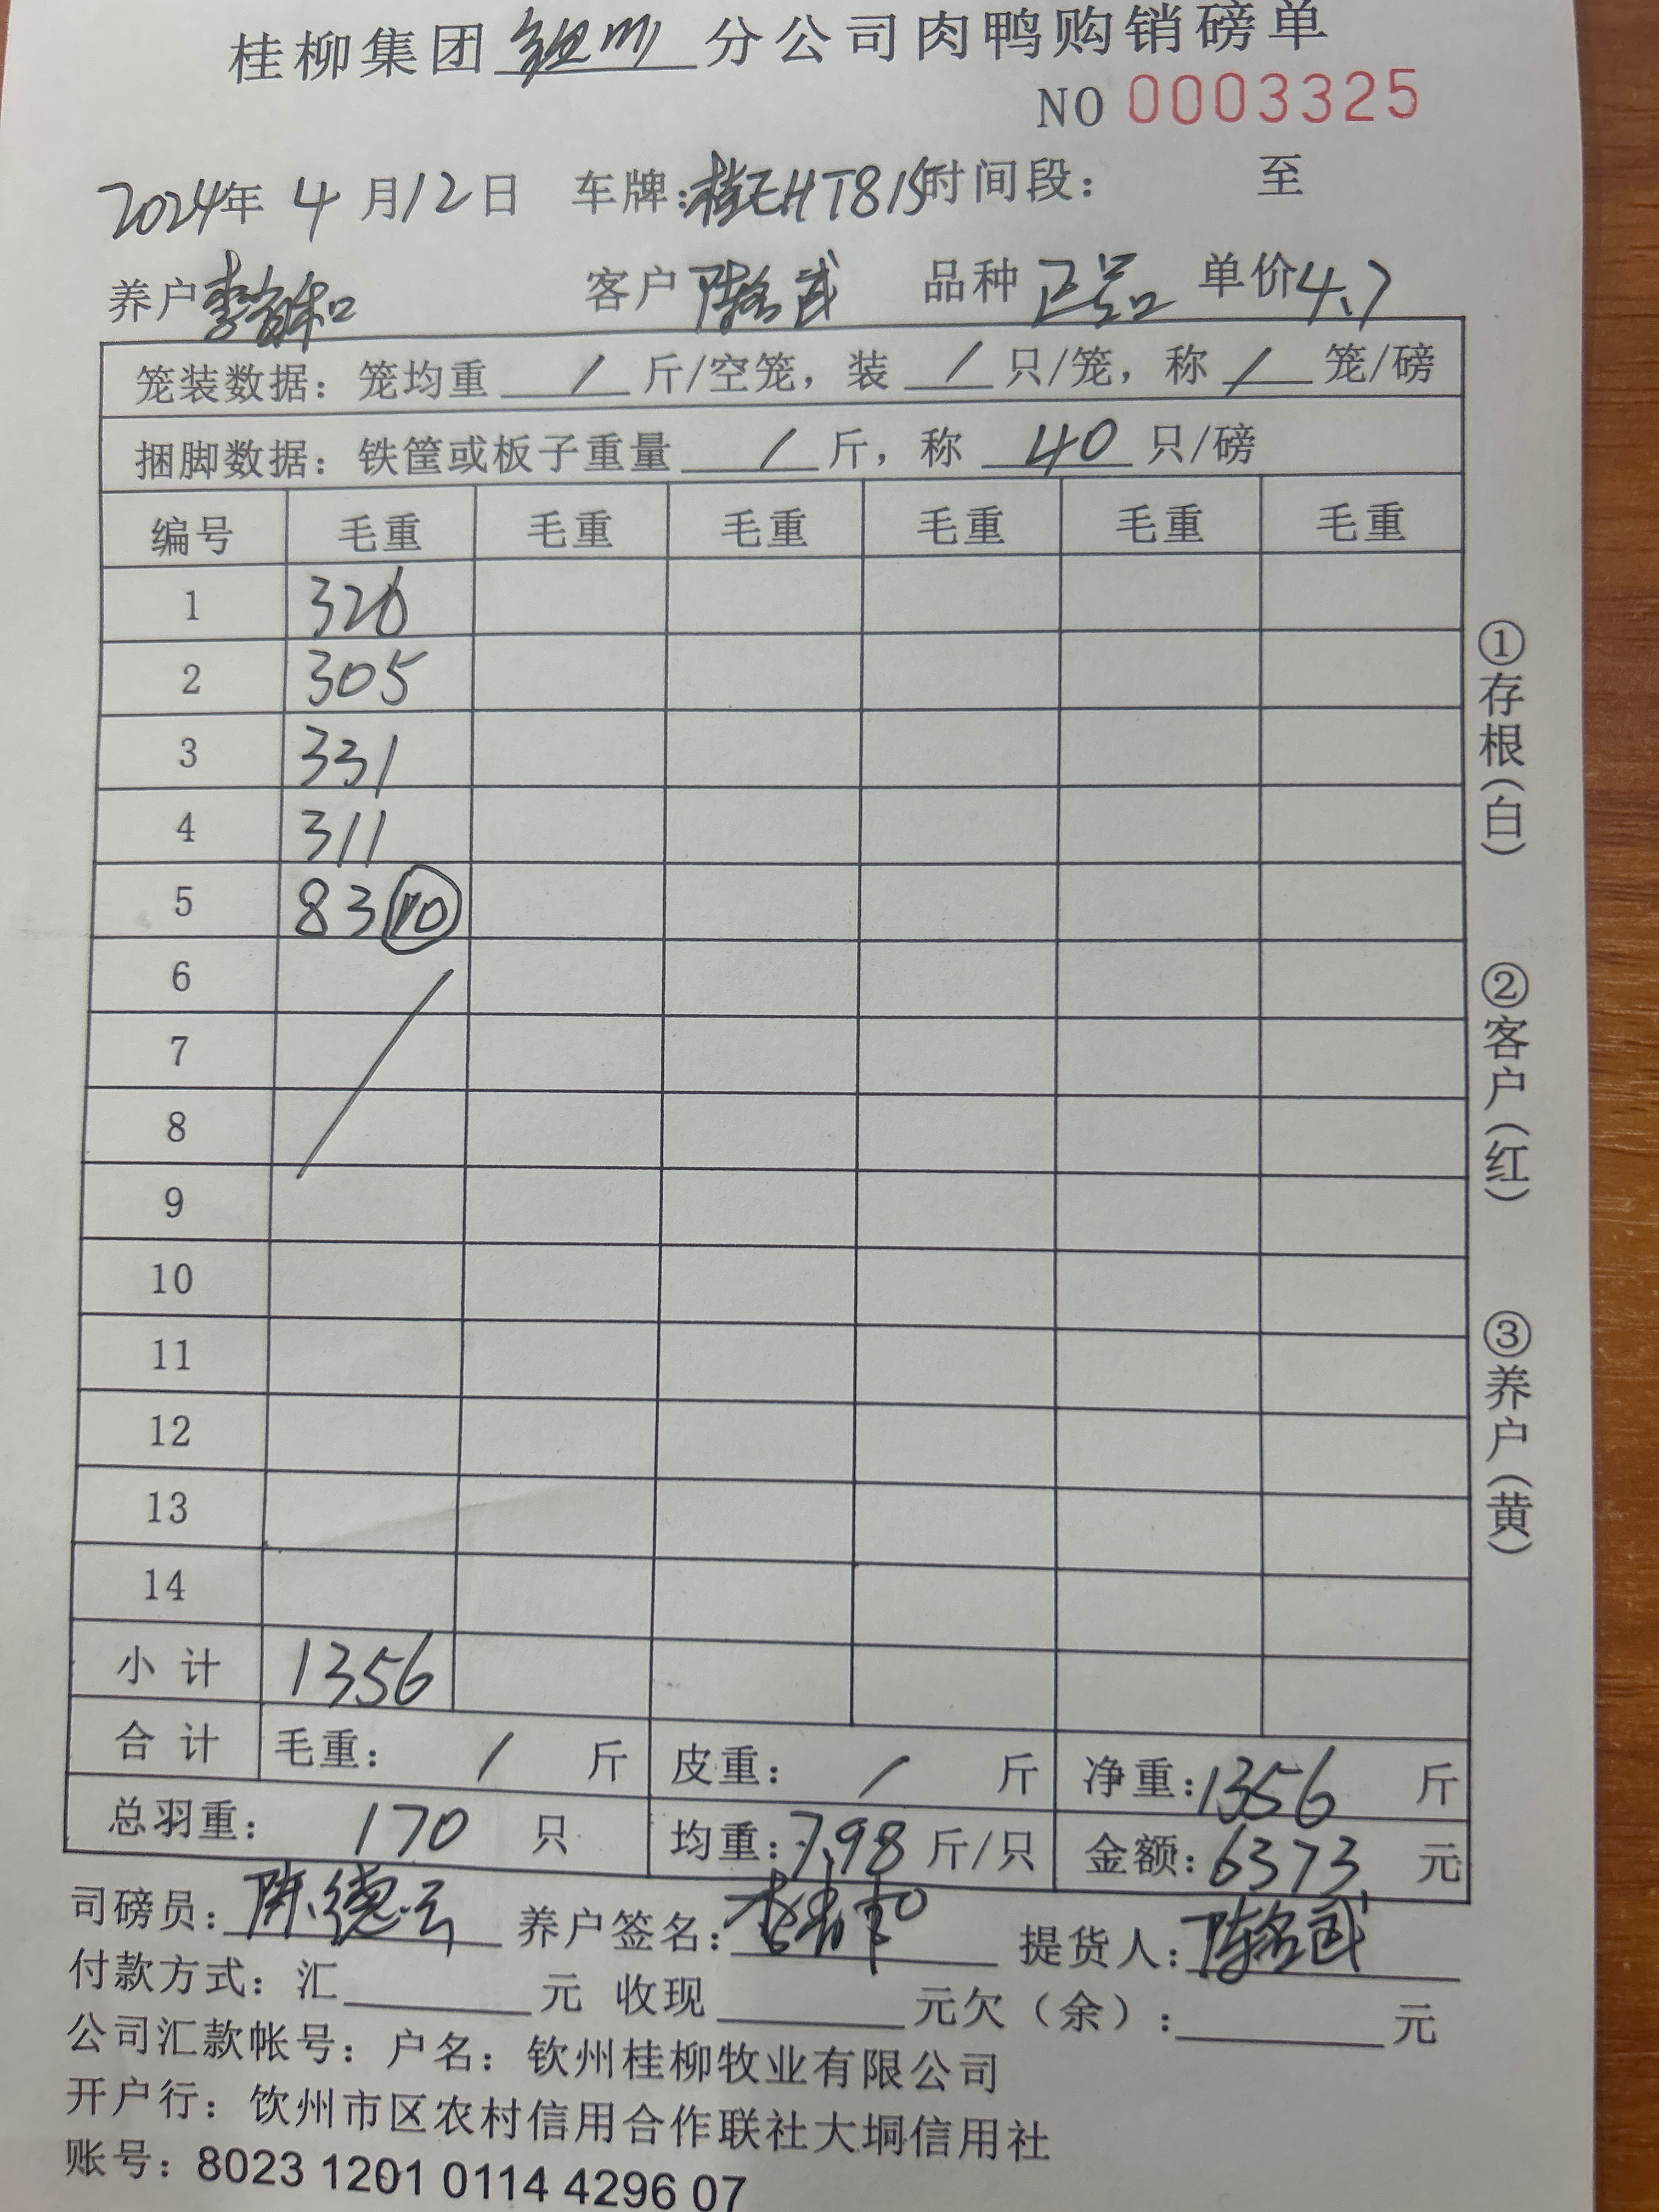 桂柳集团钦州分公司肉鸭购销磅单
NO 0003325
2024年 4月12日 车牌:桂EHT815时间段: 至
养户 客户 陈名武 品种 正品 单价4.7
笼装数据: 笼均重 / 斤/空笼, 装 / 只/笼, 称 / 笼/磅
捆脚数据: 铁筐或板子重量 / 斤, 称 40 只/磅
编号 毛重 毛重 毛重 毛重 毛重 毛重
1 326
2 305
3 331
4 311
5 83 10
6
7
8
9
10
11
12
13
14
小计 1356
合计 毛重: / 斤 皮重: / 斤 净重:1356 斤
总羽重: 170 只 均重:7.98 斤/只 金额:6373 元
司磅员:陈德云 养户签名: 提货人:陈名武
付款方式: 汇 元 收现 元欠(余): 元
公司汇款帐号: 户名: 钦州桂柳牧业有限公司
开户行: 饮州市区农村信用合作联社大垌信用社
账号: 8023 1201 0114 4296 07
①存根(白)
②客户(红)
③养户(黄)